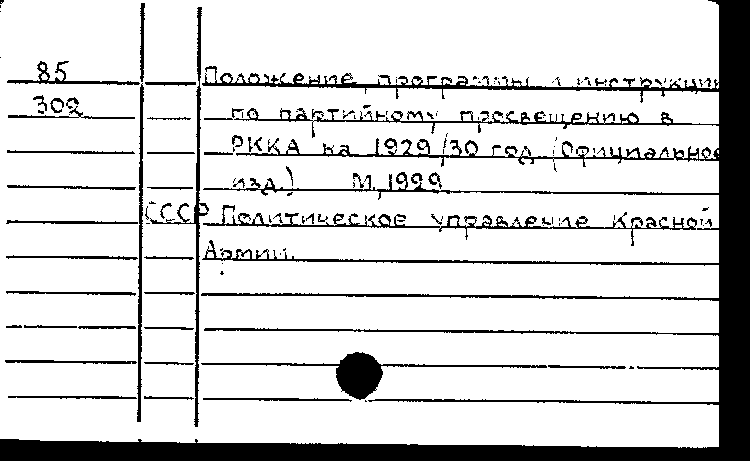 85 Положение, программы и инструкции
302 по партийному просвещению в
РККА на 1929/30 год (Официальное
изд.) М, 1929
СССР Политическое управление Красной
Армии.